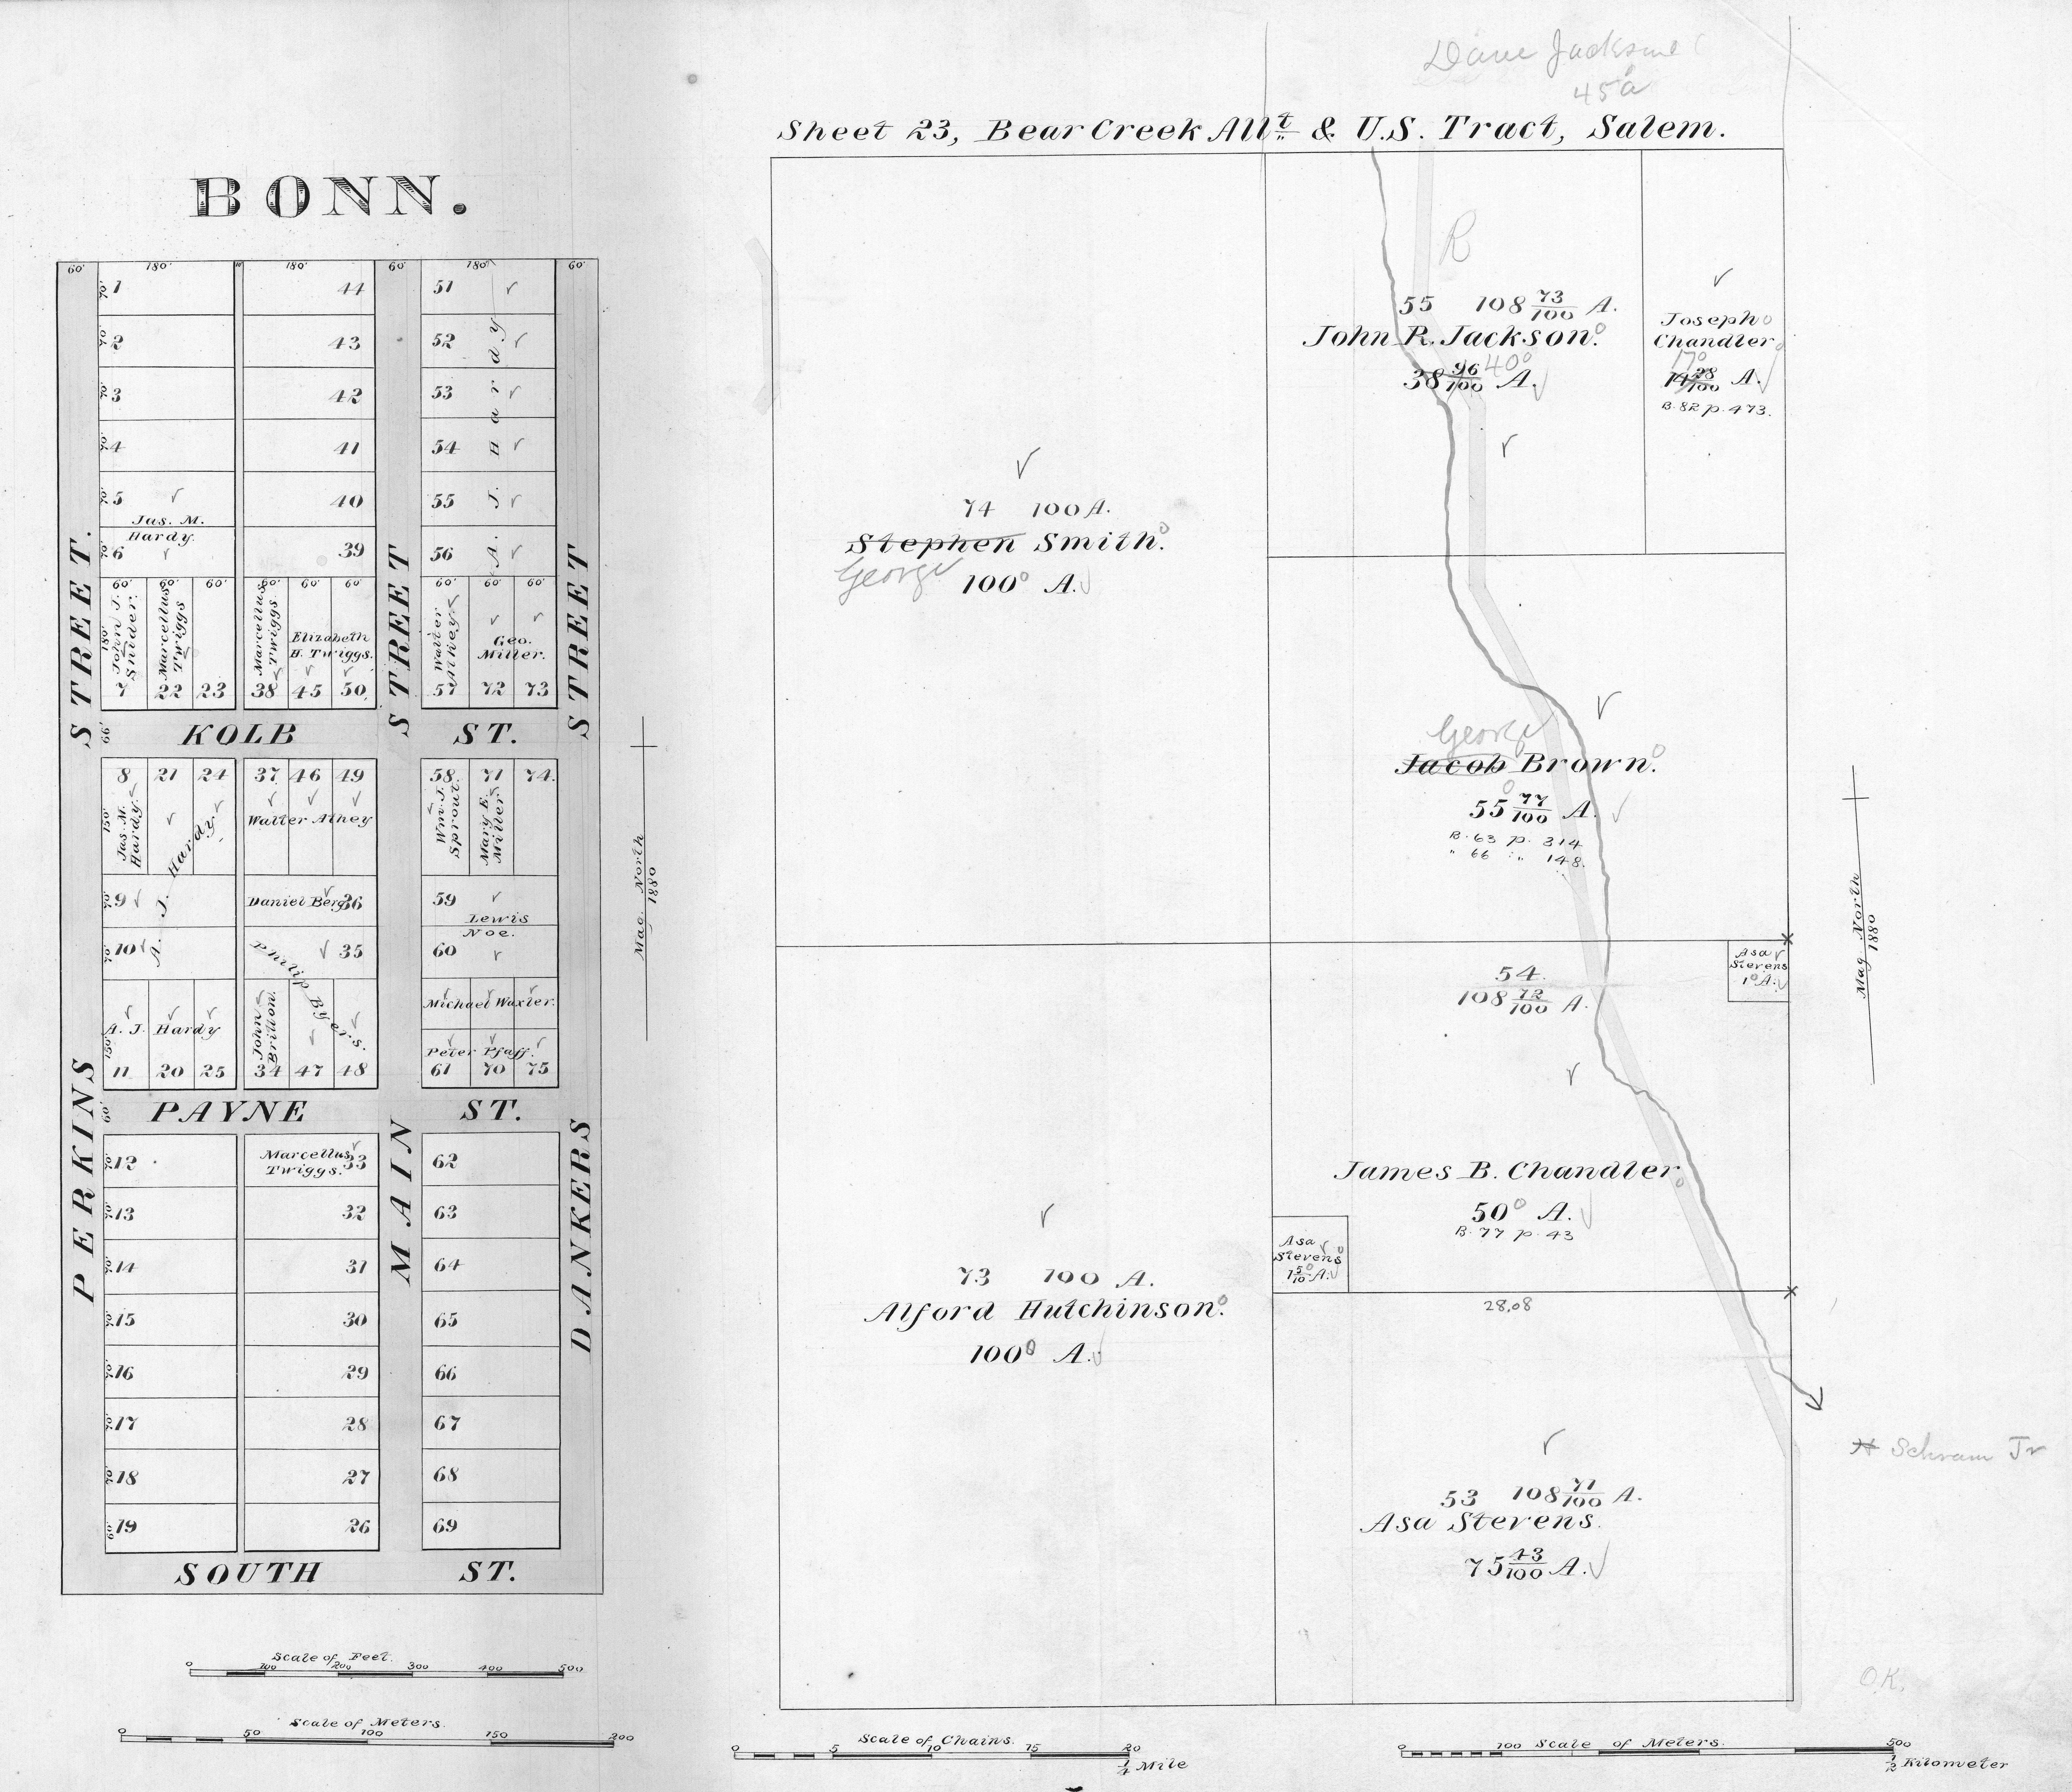 BONN.
60' 180' 10' 180' 60' 180' 60'
70' 1 44 51
70' 2 43 52
70' 3 42 53
70' 4 41 54
70' 5 40 55
Jas. M.
Hardy.
70' 6 39 56
A. J. Hardy
60' 60' 60' 60' 60' 60' 60' 60' 60'
180'
John J.
Snider.
Marcellus
Twiggs
Marcellus
Twiggs
Elizabeth
H. Twiggs.
Walter
Athey
Geo.
Miller.
7 22 23 38 45 50 57 72 73
66'
KOLB ST.
8 21 24 37 46 49 58 71 74
150'
Jas. M.
Hardy.
A. J. Hardy.
Walter Athey
Wm. J.
Sprout
Mary E.
Miller
70' 9 Daniel Berg 36 59
Lewis
Noe.
70' 10 35 60
Philip Byers.
150'
A. J. Hardy
John
Britton.
Michael Waxler.
Peter Pfaff.
11 20 25 34 47 48 61 70 75
60'
PAYNE ST.
70' 12 Marcellus
Twiggs. 33 62
70' 13 32 63
70' 14 31 64
70' 15 30 65
70' 16 29 66
70' 17 28 67
70' 18 27 68
60' 19 26 69
SOUTH ST.
PERKINS STREET.
MAIN STREET
DANKERS STREET
Mag. North
1880
Scale of Feet.
0 100 200 300 400 500
Scale of Meters.
0 50 100 150 200
Dave Jackson
45 a
Sheet 23, Bear Creek Allt. & U.S. Tract, Salem.
R
55 108 73/100 A.
John R. Jackson.
38 96/100 40 A.
Joseph
Chandler
17
14 38/100 A.
B. 82 p. 473.
74 100 A.
Stephen Smith.
George
100 A.
George
Jacob Brown.
55 77/100 A.
B. 63 p. 314
" 66 " 148.
Asa
Stevens
1 A.
54
108 72/100 A.
James B. Chandler
50 A.
B. 77 p. 43
Asa
Stevens
1 5/10 A.
28.08
73 100 A.
Alford Hutchinson.
100 A.
53 108 71/100 A.
Asa Stevens.
75 43/100 A.
Mag North
1880
Schram Jr
O.K.
Scale of Chains.
0 5 10 15 20
1/4 Mile
Scale of Meters.
0 100 500
1/2 Kilometer